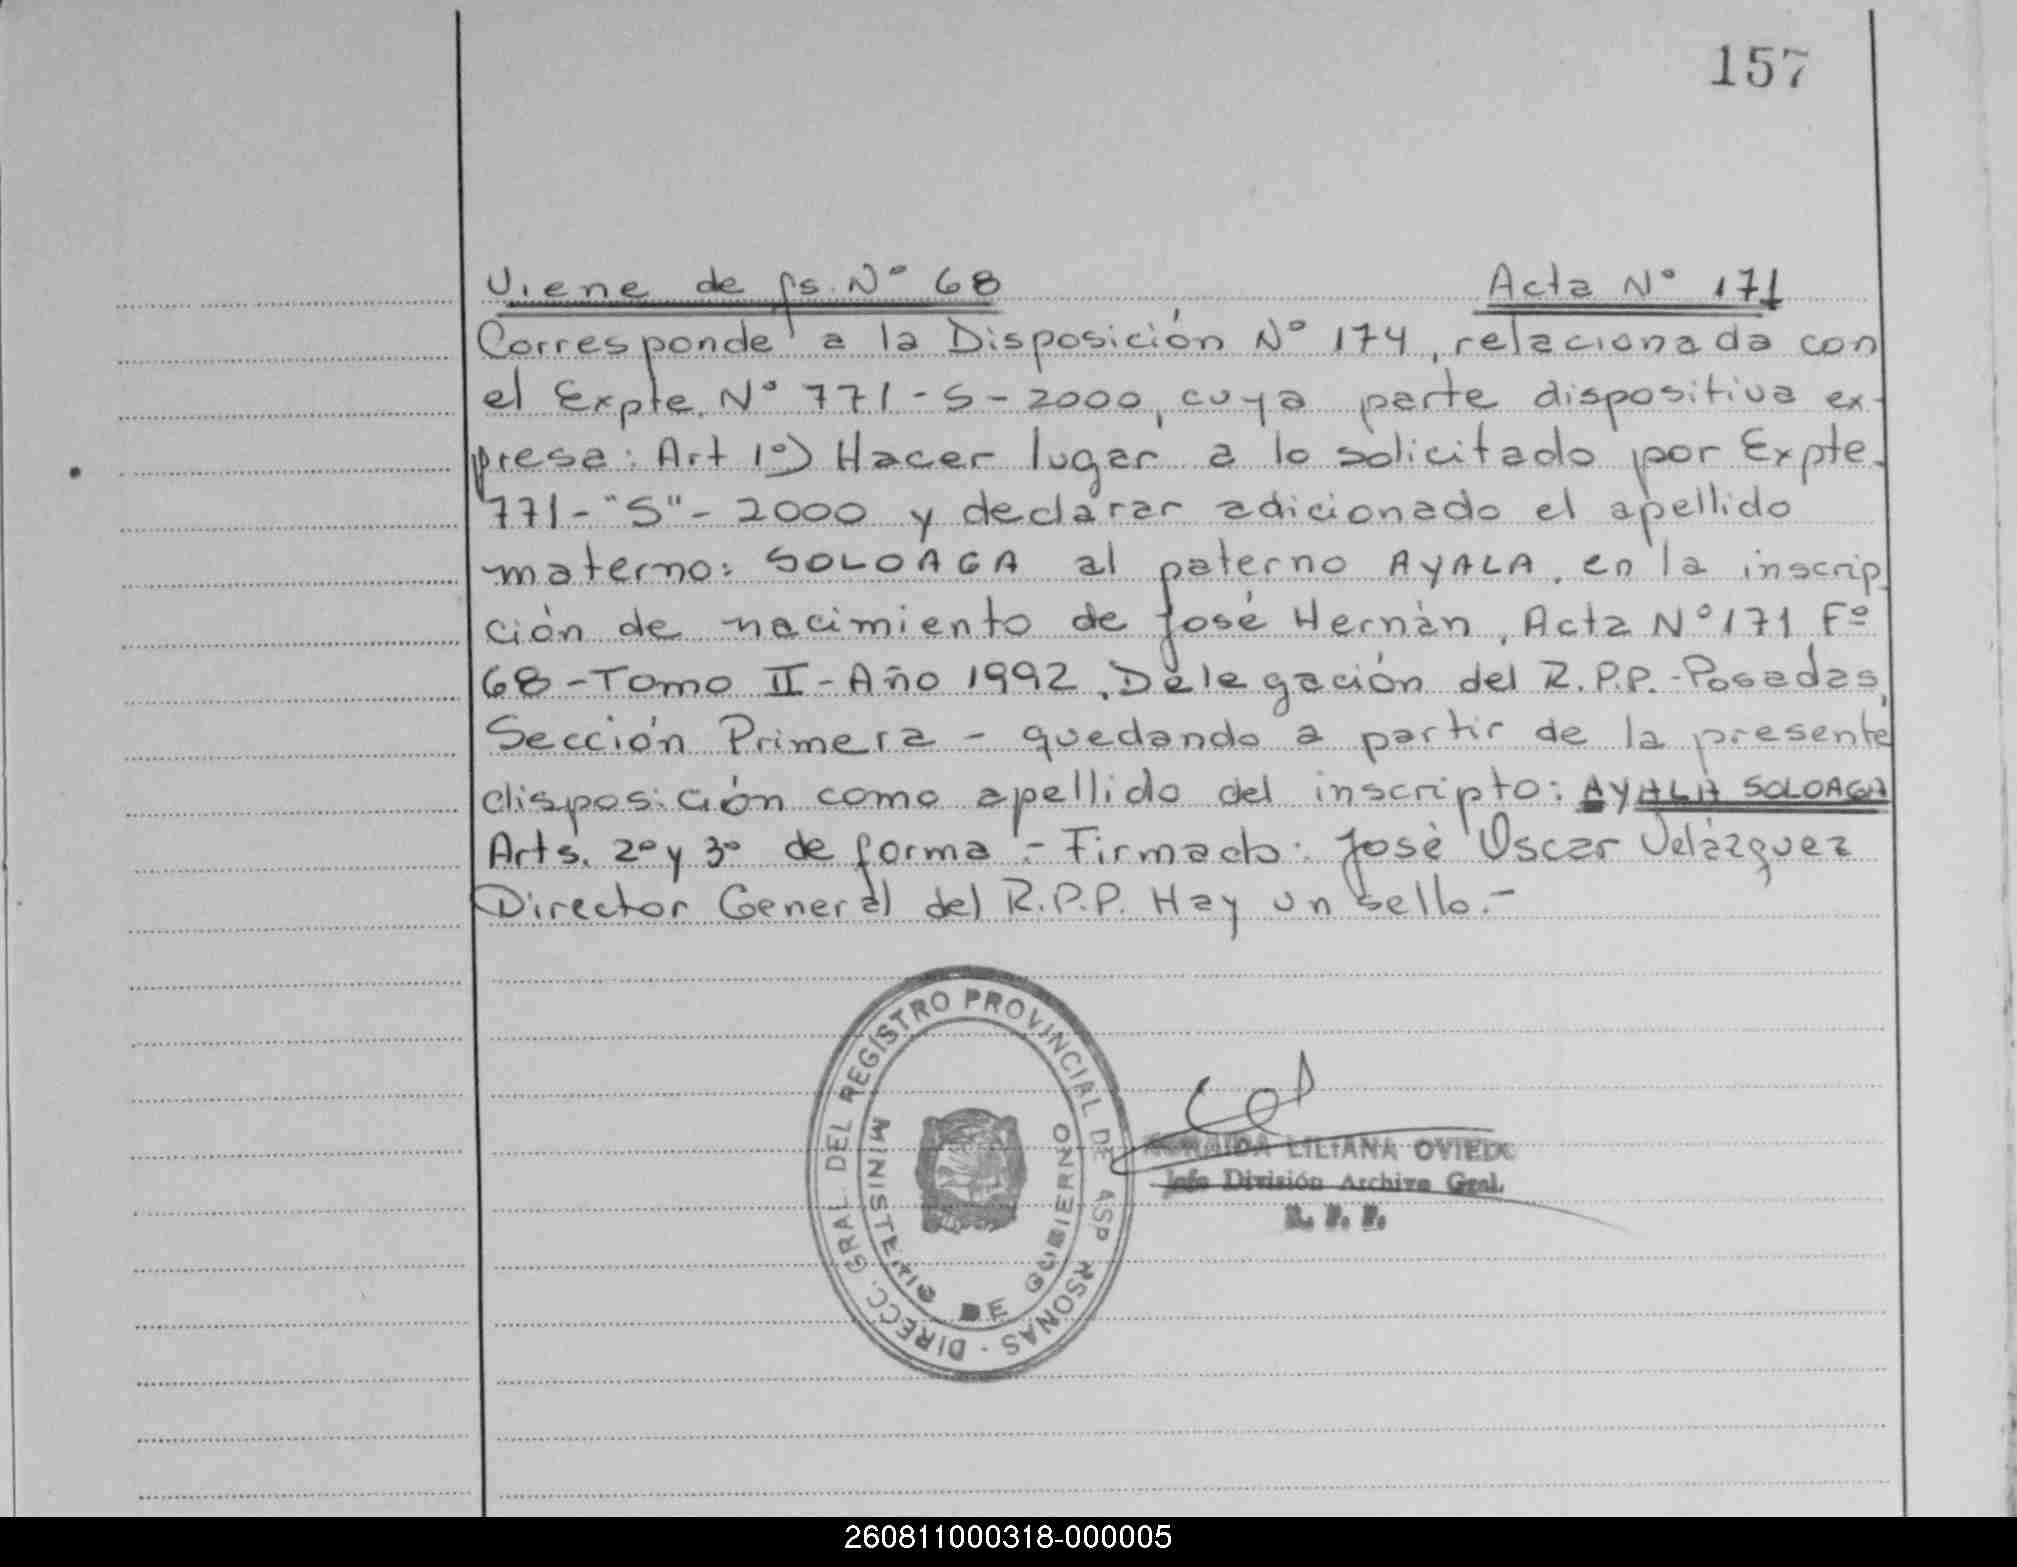 157
Viene de fs. Nº 68 Acta Nº 171
Corresponde a la Disposición Nº 174, relacionada con
el Expte. Nº 771-S-2000, cuya parte dispositiva ex-
presa: Art 1º) Hacer lugar a lo solicitado por Expte.
771-"S"-2000 y declarar adicionado el apellido
materno: SOLOAGA al paterno AYALA, en la inscrip
ción de nacimiento de José Hernàn, Acta Nº 171 Fº
68-Tomo II-Año 1992, Delegación del R.P.P.-Posadas,
Sección Primera - quedando a partir de la presente
disposición como apellido del inscripto: AYALA SOLOAGA
Arts. 2º y 3º de forma.- Firmado: José Oscar Velázquez
Director General del R.P.P. Hay un sello.-
DIRECC. GRAL DEL REGISTRO PROVINCIAL DE
MINISTERIO DE GOBIERNO
LILIANA OVIEDO
Jefe División Archivo Gral.
R. P. P.
260811000318-000005